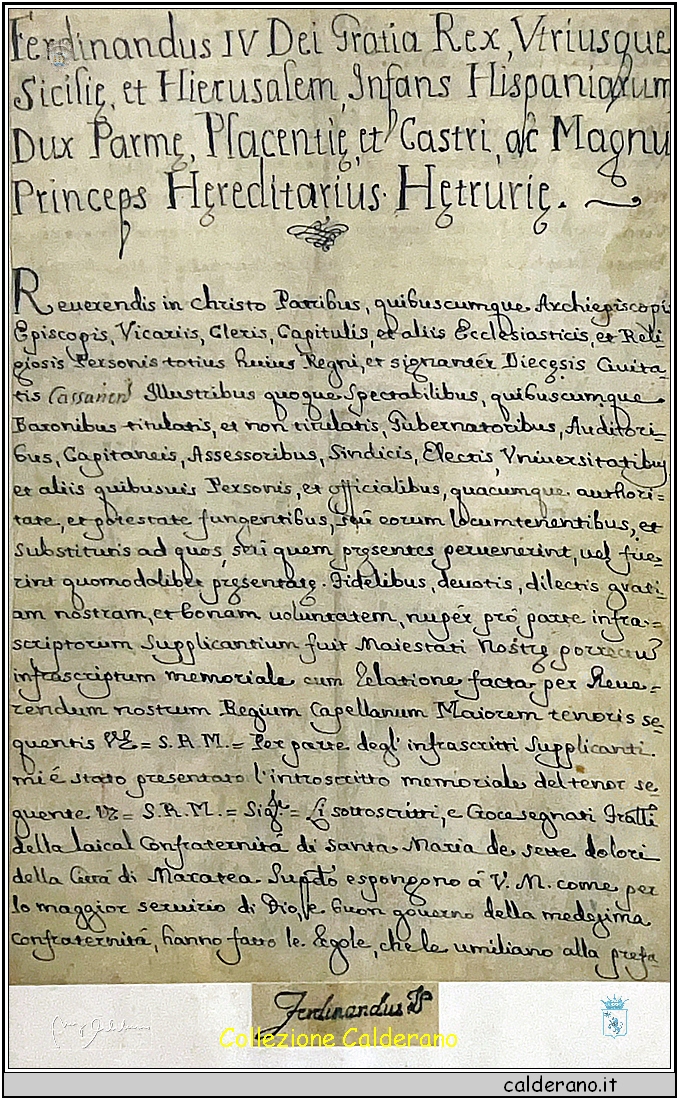 Ferdinandus IV Dei Gratia Rex, Vtriusque
Sicilię, et Hierusalem, Infans Hispaniarum
Dux Parmę, Placentię, et Castri, ac Magnu
Princeps Hęreditarius Hętrurię.
Reuerendis in Christo Patribus, quibuscumque Archiepiscopis
Episcopis, Vicariis, Cleris, Capitulis, et aliis Ecclesiasticis, et Reli-
giosis Personis totius huius Regni, et signantèr Diecęsis Ciuita-
tis Cassanen Illustribus quoque Spectabilibus, quibuscumque
Baronibus titulatis, et non titulatis, Gubernatoribus, Auditori-
bus, Capitaneis, Assessoribus, Sindicis, Electis, Vniuersitatibus
et aliis quibusuis Personis, et officialibus, quacumque authori-
tate, et potestate fungentibus, seù eorum locumtenentibus, et
Substitutis ad quos, seù quem pręsentes peruenerint, uel fue-
rint quomodolibet pręsentatę. Fidelibus, deuotis, dilectis grati-
am nostram, et bonam uoluntatem, nupèr prò parte infra-
scriptorum Supplicantium fuit Maiestati Nostrę porrectum
infrascriptum memoriale cum Relatione facta per Reue-
rendum nostrum Regium Capellanum Maiorem tenoris se-
quentis Vz = S. R. M. = Per parte degl' infrascritti Supplicanti
mi é stato presentato l'introscritto memoriale del tenor se-
guente Vz = S. R. M. = Sigre = Li sottoscritti, e Crocesegnati Fratlli
della laical Confraternitá di santa Maria de sette dolori
della Cittá di Maratea Suptto espongono á V. M. come per
lo maggior seruizio di Dio, e buon gouerno della medesima
Confraternitá, hanno fatto le Regole, che le umiliano alla presa-
Ferdinandus
Collezione Calderano
calderano.it